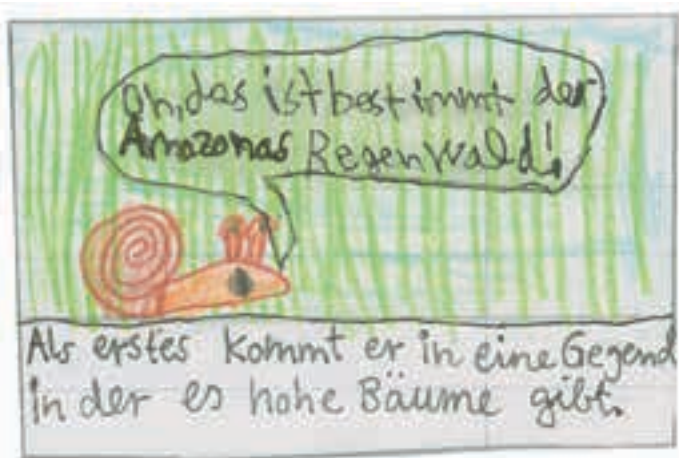 Oh, das ist bestimmt der
Amazonas Regenwald!
Als erstes kommt er in eine Gegend
in der es hohe Bäume gibt.